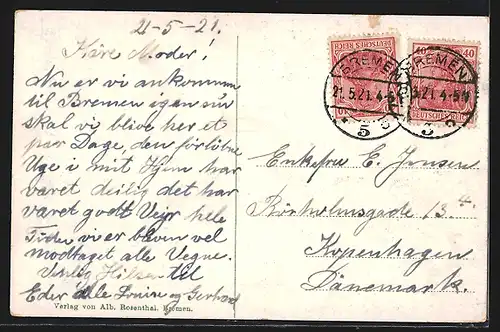 21-5-21.
Kære Moder!
Nu er vi ankommen
til Bremen igen nu
skal vi blive her et
par Dage, den forløbne
Uge i mit Hjem har
varet deilig det har
varet godt Vejr hele
Tiden vi er bleven vel
modtaget alle Vegne.
Venlig Hilsen til
Eder alle Louise og Gerhard
Verlag von Alb. Rosenthal, Bremen.
DEUTSCHES REICH
40 40
DEUTSCHES REICH
BREMEN
21.5.21.4-5
5
BREMEN
21.4-5
5
Enkefru E. Jensen
13.4.
Kopenhagen
Dänemark.